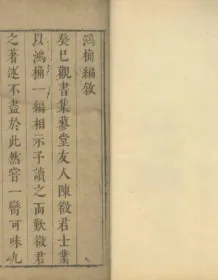 鴻桷編敘
癸巳觀書集蓼堂友人陳徵君士業
以鴻桷一編相示予讀之而歎徵君
之著述不盡於此然嘗一臠可味九